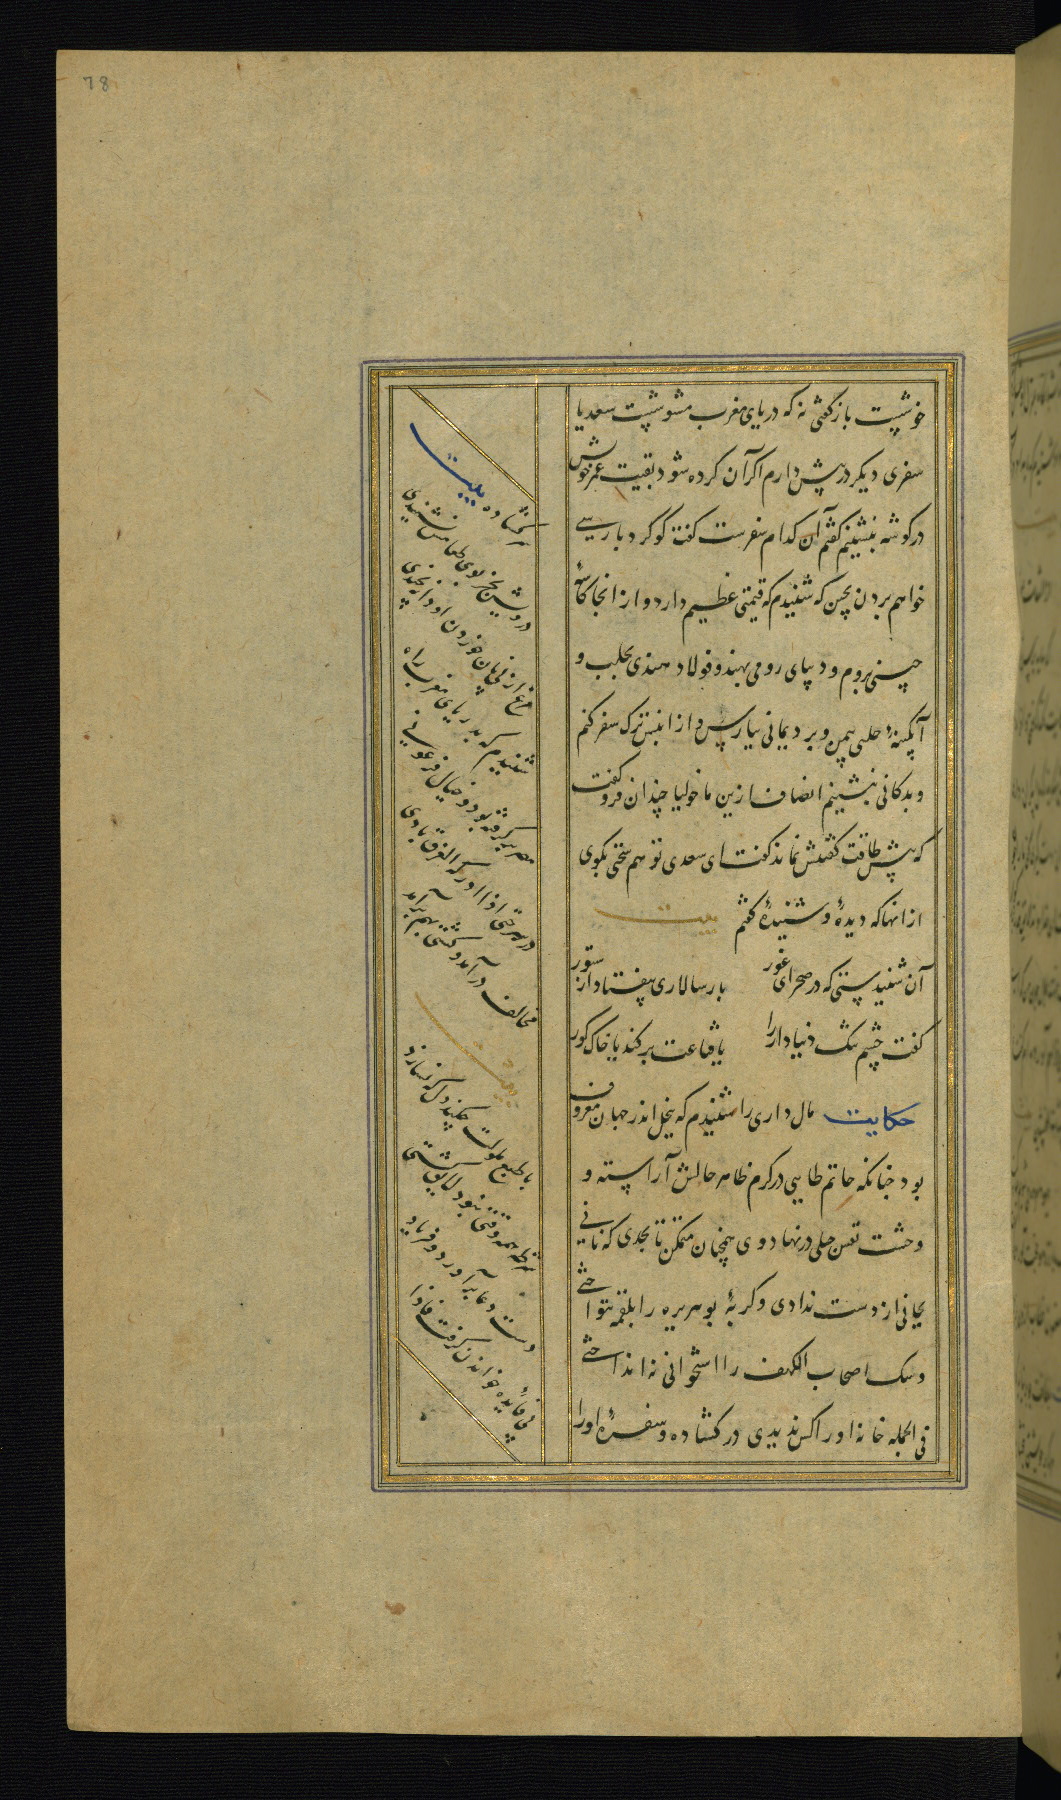 78
خوشیست باز گفتی نه که دریای مغرب مشوشیست سعدیا
سفری دیگر در پیش دارم اگر آن کرده شود بقیت عمر خویش
در گوشه بنشینم گفتم آن کدام سفرست گفت گوگرد پارسی
خواهم بردن بچین که شنیدم که قیمتی عظیم دارد و از انجا کاسهٔ
چینی بروم و دیبای رومی بهند و فولاد هندی بحلب و
آبگینهٔ حلبی بیمن و برد یمانی بپارس و از ان پس ترک سفر کنم
و بدکانی بنشینم انصاف ازین ماخولیا چندان فرو گفت
که بیش طاقت گفتنش نماند گفت ای سعدی تو هم سخنی بگوی
از انها که دیدهٔ و شنیدهٔ گفتم بیت
آن شنیدستی که در صحرای غور بار سالاری بیفتاد از ستور
گفت چشم تنگ دنیادار را یا قناعت پر کند یا خاک گور
حکایت مال داری را شنیدم که ببخل اندر جهان معروف
بود چنانکه حاتم طایی در کرم ظاهر حالش آراسته و
خست نفس جبلی در نهاد وی همچنان متمکن تا بجدی که نانی
بجانی از دست ندادی و گربهٔ بوهریره را بلقمه ننواختی
و سگ اصحاب الکهف را استخوانی نه انداختی
فی الجمله خانه او را کس ندیدی در گشاده و سفرهٔ او را
سر گشاده بیت
درویش بجز بوی طعامش نشنیدی
مرغ از پی نان خوردن او ریزه نچیدی
شنیدم که بدریای مغرب راه
مصر برگرفته بود و خیال فرعونی
در سر حتی اذا ادرکه الغرق بادی
مخالف در آمد و کشتی بهم برآمد
بیت
با طبع ملولت چکند دل که نسازد
شرطه همه وقتی نبود لایق کشتی
دست دعا برآورد و فریاد
بی فایده خواندن گرفت فاذا